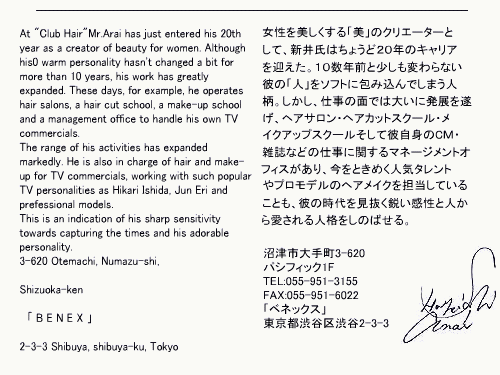 At "Club Hair"Mr.Arai has just entered his 20th
year as a creator of beauty for women. Although
his0 warm personality hasn't changed a bit for
more than 10 years, his work has greatly
expanded. These days, for example, he operates
hair salons, a hair cut school, a make-up school
and a management office to handle his own TV
commercials.
The range of his activities has expanded
markedly. He is also in charge of hair and make-
up for TV commercials, working with such popular
TV personalities as Hikari Ishida, Jun Eri and
prefessional models.
This is an indication of his sharp sensitivity
towards capturing the times and his adorable
personality.
3-620 Otemachi, Numazu-shi,
Shizuoka-ken
「ＢＥＮＥＸ」
2-3-3 Shibuya, shibuya-ku, Tokyo
女性を美しくする「美」のクリエーターと
して、新井氏はちょうど２０年のキャリア
を迎えた。１０数年前と少しも変わらない
彼の「人」をソフトに包み込んでしまう人
柄。しかし、仕事の面では大いに発展を遂
げ、ヘアサロン・ヘアカットスクール・メ
イクアップスクールそして彼自身のCM・
雑誌などの仕事に関するマネージメントオ
フィスがあり、今をときめく人気タレント
やプロモデルのヘアメイクを担当している
ことも、彼の時代を見抜く鋭い感性と人か
ら愛される人格をしのばせる。
沼津市大手町3-620
パシフィック1F
TEL:055-951-3155
FAX:055-951-6022
「ベネックス」
東京都渋谷区渋谷2-3-3
Arai